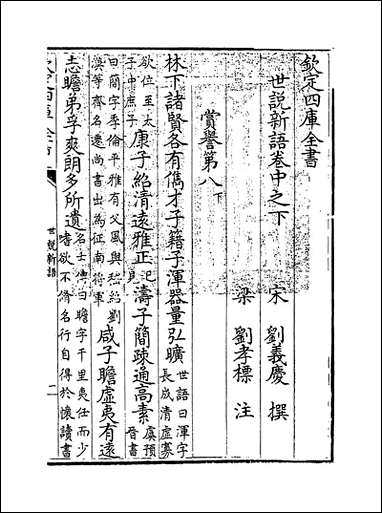 欽定四庫全書
世說新語卷中之下
宋 劉義慶 撰
梁 劉孝標 注
賞譽第八下
林下諸賢各有儁才子籍子渾器量弘曠世語曰渾字長成清虛寡
欲位至太子中庶子康子紹清遠雅正已見濤子簡疏通高素虞預晉書
曰簡字季倫平雅有父風與嵇紹劉漠等齊名遷尚書出為征南將軍咸子瞻虛夷有遠
志瞻弟孚爽朗多所遺名士傳曰瞻字千里夷任而少嗜欲不脩名行自得於懷讀書
世說新語